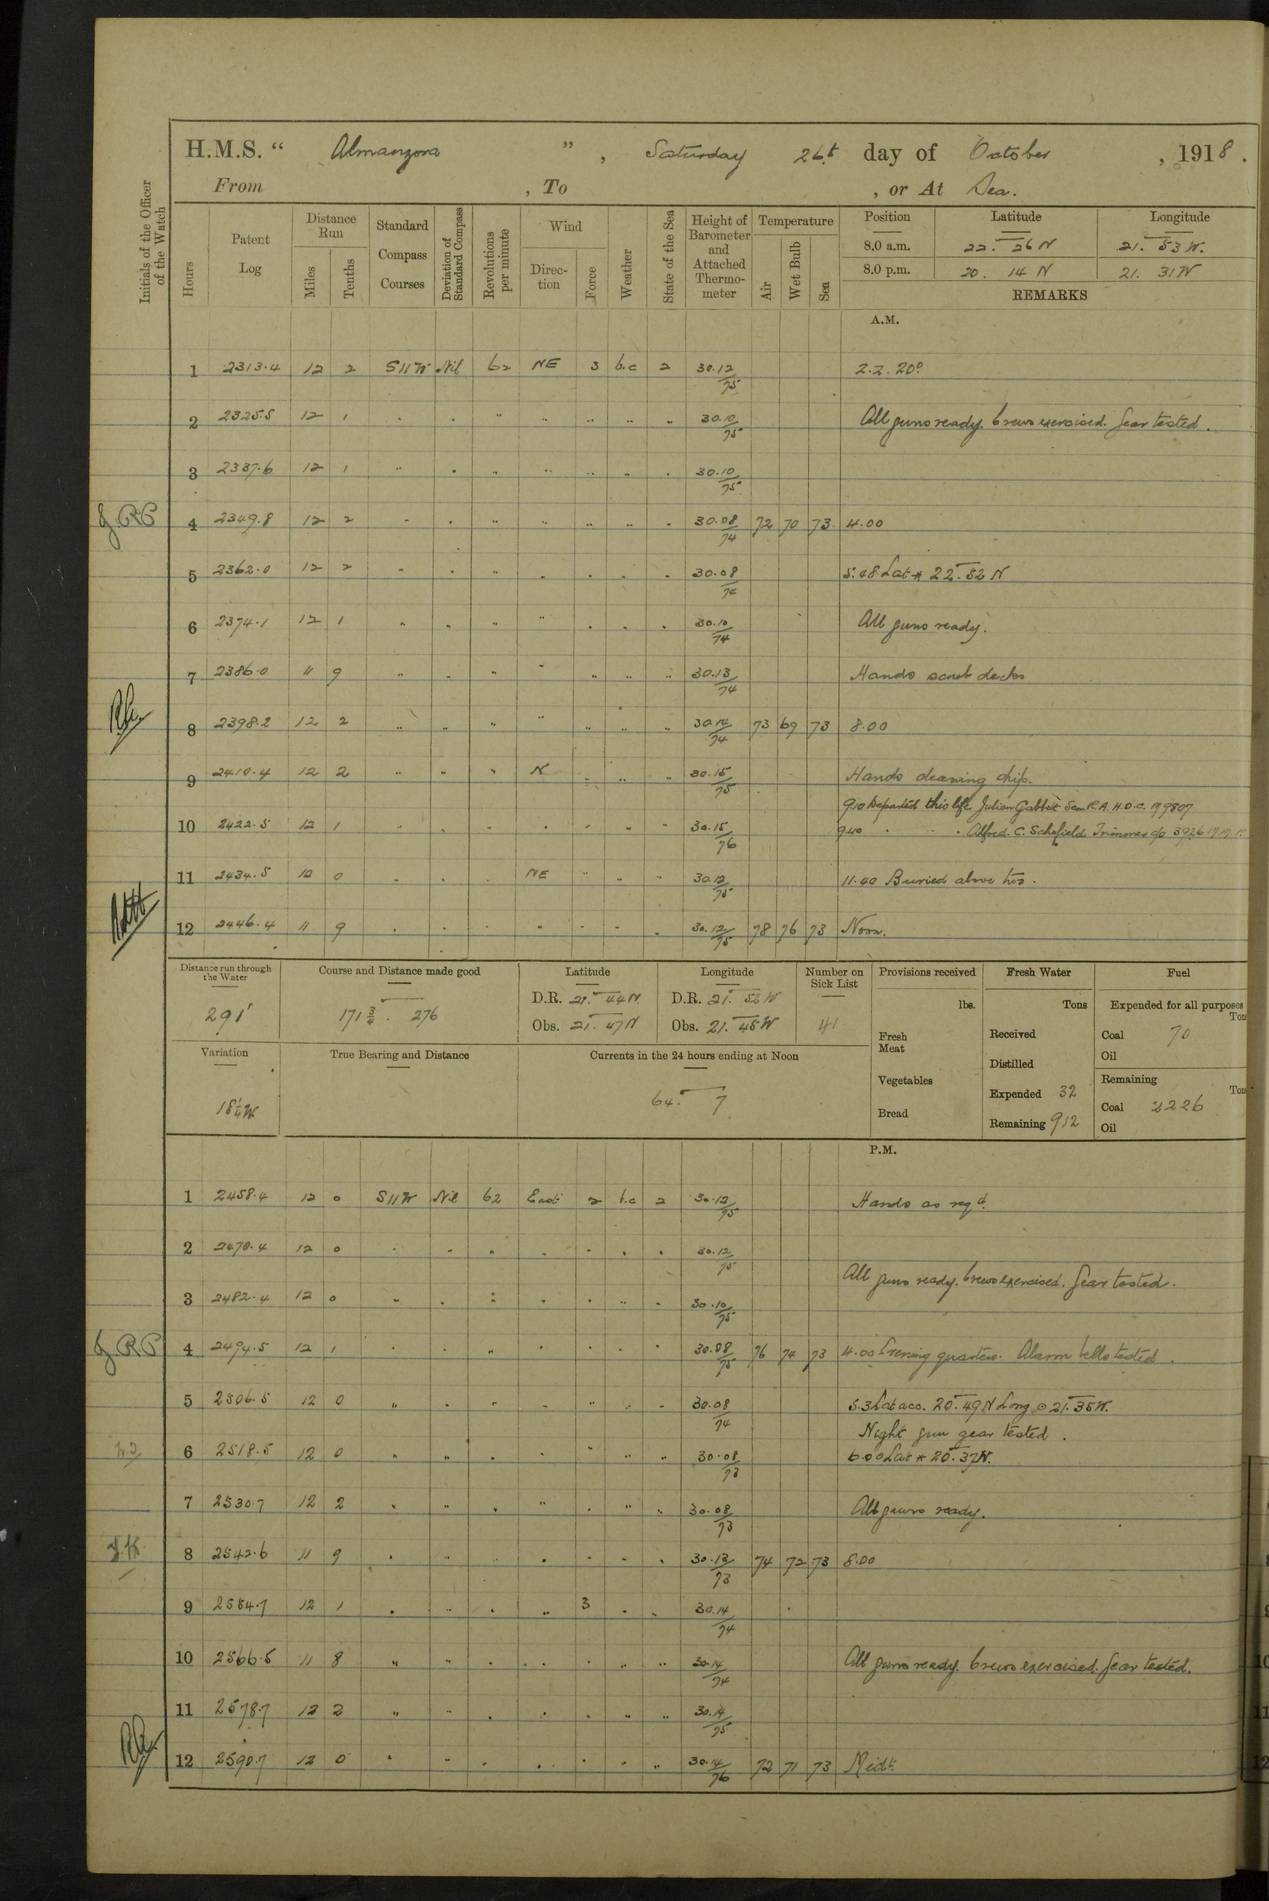 H.M.S. “ Almanzora ” , Saturday 26t day of October , 1918 .
From , To , or At Sea.
Initials of the Officer of the Watch
Hours
Patent Log
Distance Run
Miles
Tenths
Standard Compass Courses
Deviation of Standard Compass
Revolutions per minute
Wind
Direc-tion
Force
Weather
State of the Sea
Height of Barometer and Attached Thermo-meter
Temperature
Air
Wet Bulb
Sea
Position Latitude Longitude
8.0 a.m. 22. 26 N 21. 53 W.
8.0 p.m. 20. 14 N 21. 31 W
REMARKS
A.M.
1 2313.4 12 2 S11W Nil 62 NE 3 b.c 2 30.12/75 Z.Z. 20°
2 2325.5 12 1 " " " " " " " 30.10/75 All guns ready. Crews exercised. Gear tested.
3 2337.6 12 1 " " " " " " " 30.10/75
4 2349.8 12 2 " " " " " " " 30.08/74 72 70 73 4.00
5 2362.0 12 2 " " " " " " " 30.08/74 5.48 Lat * 22. 52 N
6 2374.1 12 1 " " " " " " " 30.10/74 All guns ready.
7 2386.0 11 9 " " " " " " " 30.13/74 Hands scrub decks
8 2398.2 12 2 " " " " " " " 30.14/74 73 69 73 8.00
9 2410.4 12 2 " " " N " " " 30.15/75 Hands cleaning ship.
9.10 Departed this life Julian Gabbit Sea. R.A. H.D.C. 19807
10 2422.5 12 1 " " " " " " " 30.15/76 9.40 " " " Alfred. C. Schofield Trimmer
11 2434.5 12 0 " " " NE " " " 30.12/75 11.40 Buried above two.
12 2446.4 11 9 " " " " " " " 30.12/75 78 76 73 Noon.
Distance run through the Water
291'
Course and Distance made good
171 3/4. 276
Latitude
D.R. 21. 44 N
Obs. 21. 47 N
Longitude
D.R. 21. 52 W
Obs. 21. 45 W
Number on Sick List
41
Provisions received
lbs.
Fresh Meat
Vegetables
Bread
Fresh Water
Tons
Received
Distilled
Expended 32
Remaining 912
Fuel
Expended for all purposes
Ton
Coal 70
Oil
Remaining
Ton
Coal 2226
Oil
Variation
18 1/4 W
True Bearing and Distance
Currents in the 24 hours ending at Noon
64. 7
P.M.
1 2458.4 12 0 S11W Nil 62 East 2 b.c 2 30.12/75 Hands as reqd.
2 2470.4 12 0 " " " " " " " 30.12/75
All guns ready. Crews exercised. Gear tested.
3 2482.4 12 0 " " " " " " " 30.10/75
4 2494.5 12 1 " " " " " " " 30.08/75 76 74 73 4.00 Evening quarters. Alarm bells tested.
5 2506.5 12 0 " " " " " " " 30.08/74 5.3 Lat acc. 20. 49 N Long ☉ 21. 35 W.
Night gun gear tested.
6 2518.5 12 0 " " " " " " " 30.08/73 6.00 Lat * 20. 37 N.
7 2530.7 12 2 " " " " " " " 30.08/73 All guns ready.
8 2542.6 11 9 " " " " " " " 30.13/73 74 72 73 8.00
9 2554.7 12 1 " " " " 3 " " 30.14/74
10 2566.5 11 8 " " " " " " " 30.14/74 All guns ready. Crews exercised. Gear tested.
11 2578.7 12 2 " " " " " " " 30.14/75
12 2590.7 12 0 " " " " " " " 30.14/76 72 71 73 Midt.